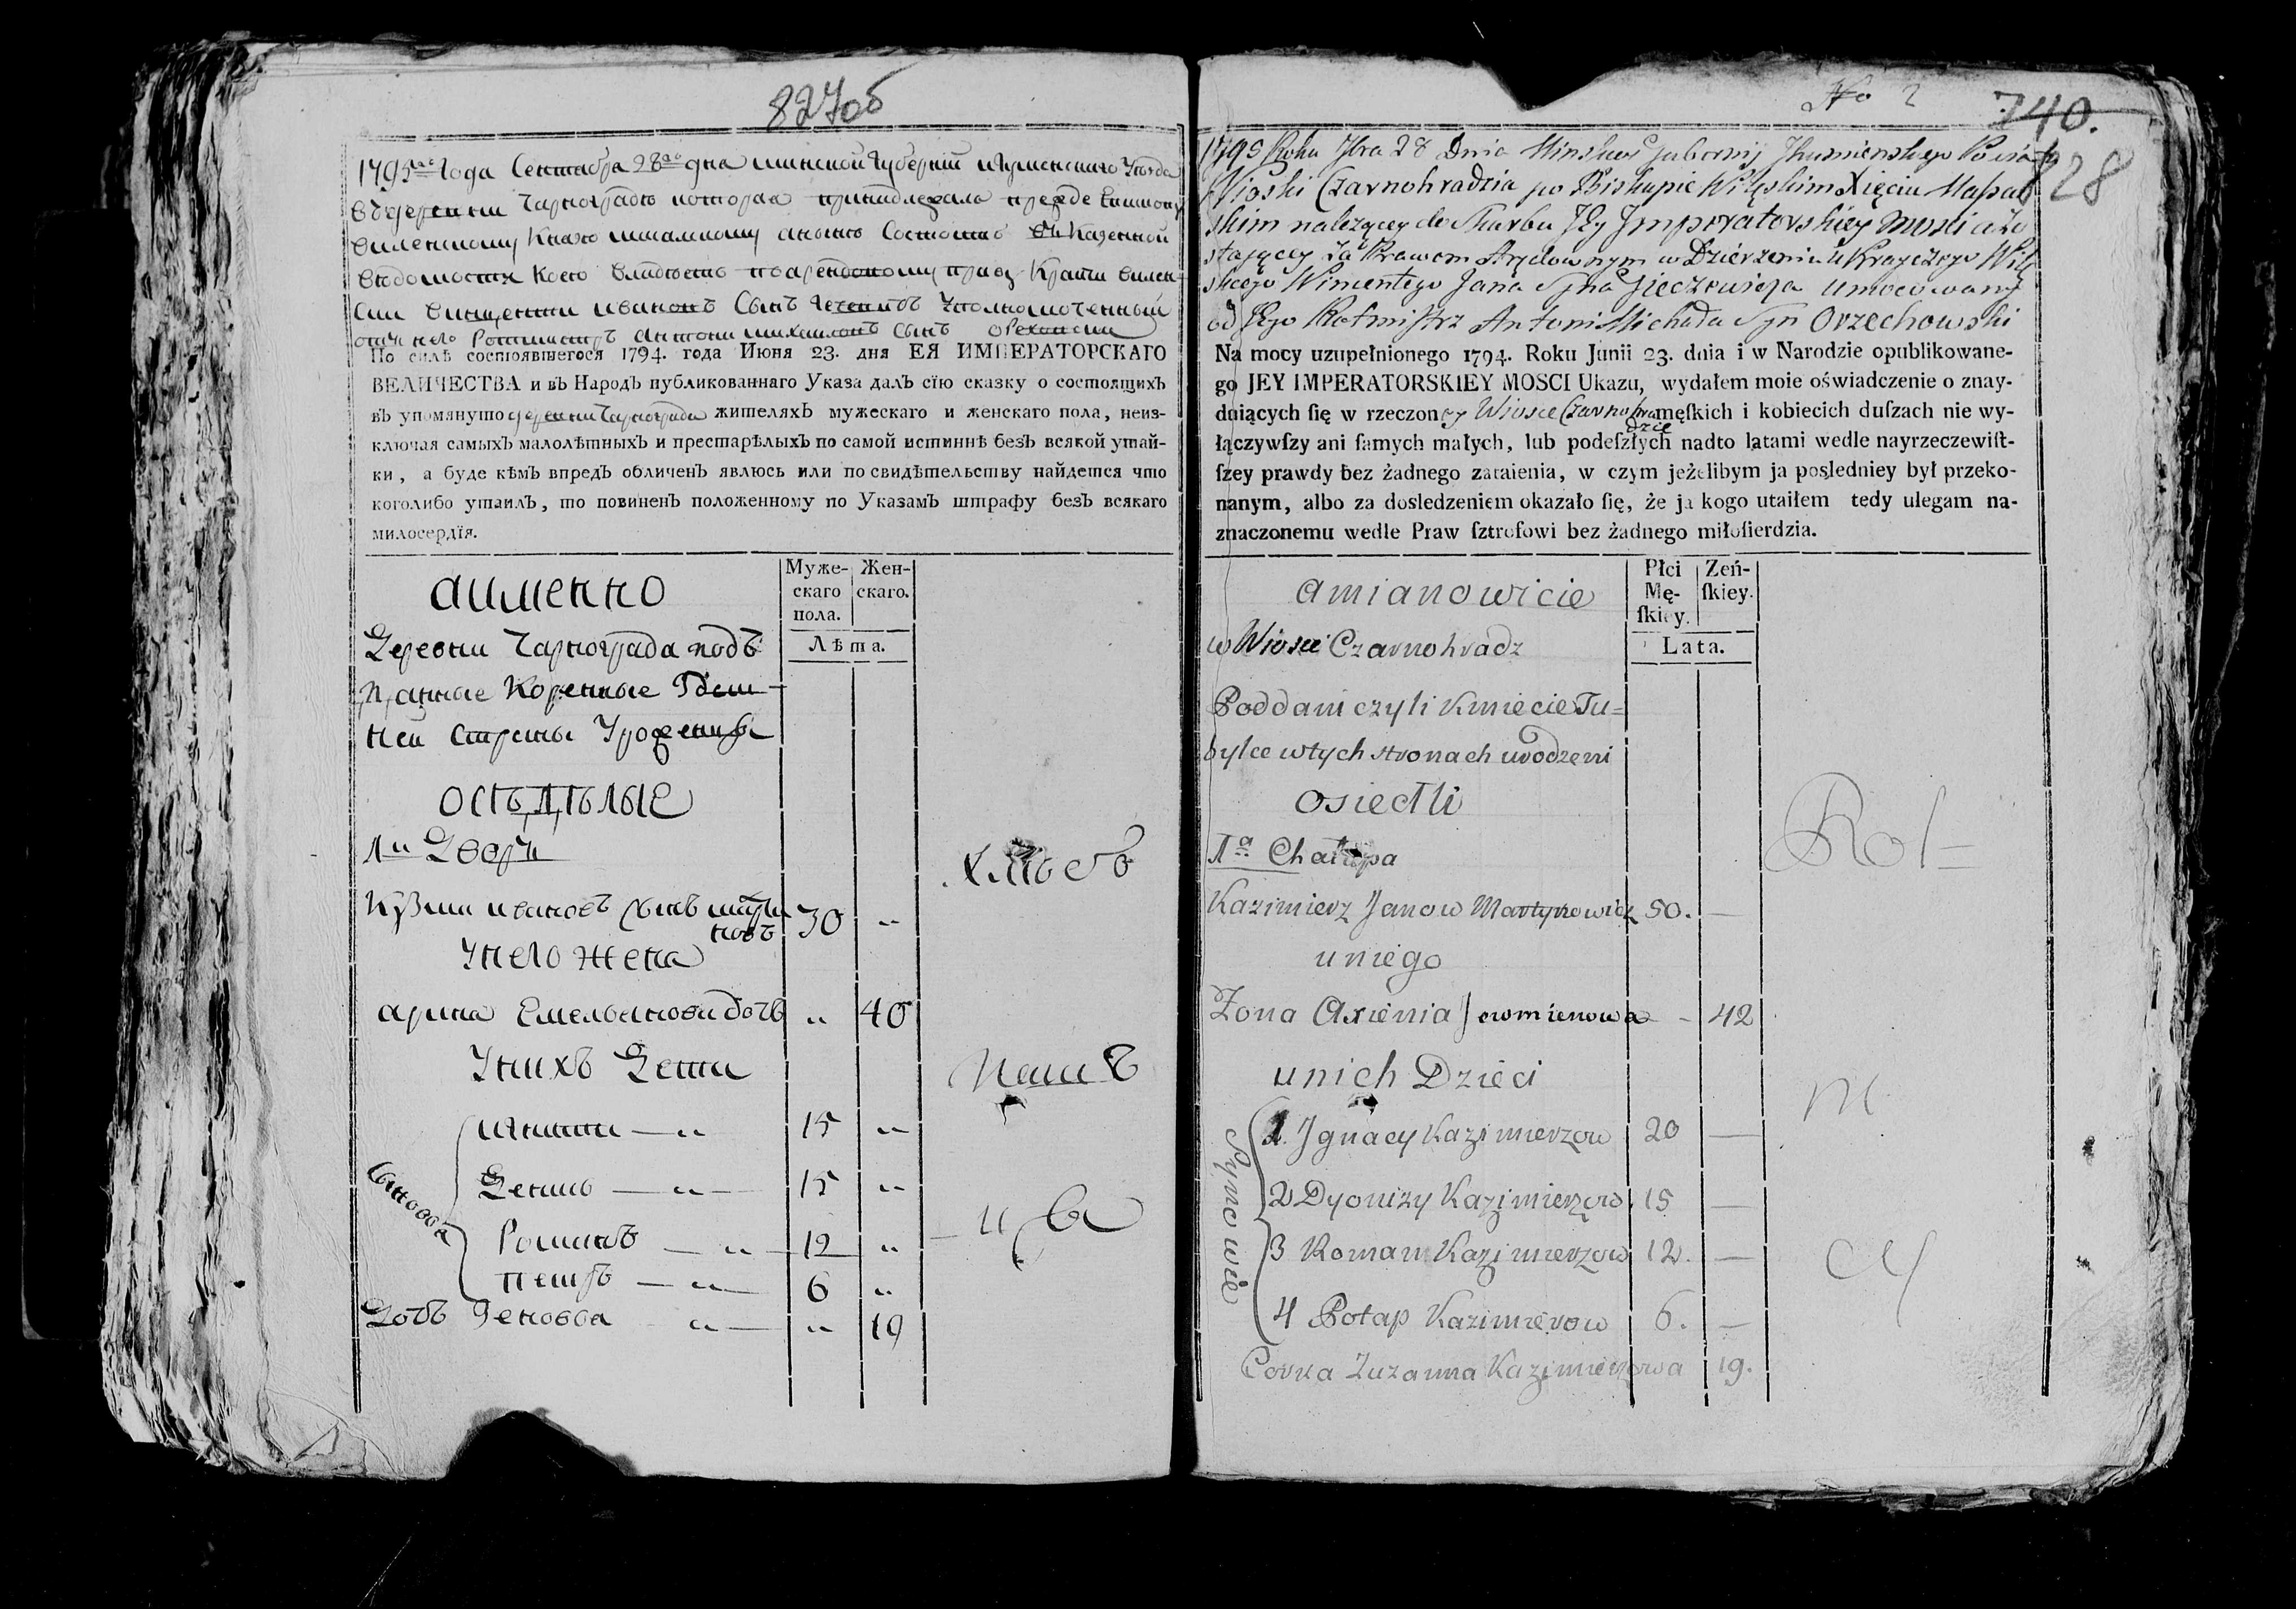 827об
1795го Года Сентября 28го дня минской Губерніи игуменского Уезда
в деревни Чарнограде которая принадлежала прежде
виленскому Князю а ныне Состоитъ въ Казенной
ведомости коего владеетъ по арендовному праву
винцентии ивановъ Сынъ Уполномоченный
отъ него Ротмистръ антони михаиловъ Сынъ
По силѣ состоявшегося 1794. года Июня 23. дня ЕЯ ИМПЕРАТОРСКАГО
ВЕЛИЧЕСТВА и въ Народъ публикованнаго Указа далъ сїю сказку о состоящихъ
въ упомянуто деревни Чарнограда жителяхъ мужескаго и женскаго пола, неиз-
ключая самыхъ малолѣтныхъ и престарѣлыхъ по самой истиннѣ безъ всякой утай-
ки, а буде кѣмъ впредъ обличенъ явлюсь или по свидѣтельству найдется что
коголибо утаилъ, то повиненъ положенному по Указамъ штрафу безъ всякаго
милосердїя.
Муже-скаго пола.
Жен-скаго.
Лѣта.
аименно
Деревни Чарнограда подъ
данные Коренные Здеш-
ней Стрены Уроженцы
осѣдѣлые
1й Дворъ
Кузьми ивановъ Сынъ марти
новъ 30 „
Унего жена
арина Емельянова дочь „ 40
Унихъ Дети
Сыновья
15 „
Денисъ — „ — 15 „
Романъ — „ — 12 „
петръ — „ — 6 „
Дочь Зеновья „ — „ 19
No 2
740.
828
1795 Roku 7bra 28 Dnia Minskiey Gubernij Jhumienskiego Powiatu
Wioski Czarnohradzia po Biskupie Wileskim Xięciu Massal
skim należącey do Skarbu Jey Jmperatorskiey Mości a zo
stającey za Prawem Arędownym w Dzierżeniu Krayczego Wile
skiego Wincentego Jana Syna Jieczewicza umocowany
od Jego Rotmistrz Antoni Michała Syn Orzechowski
Na mocy uzupełnionego 1794. Roku Junii 23. dnia i w Narodzie opublikowane-
go JEY IMPERATORSKIEY MOSCI Ukazu, wydałem moie oświadczenie o znay-
duiących ſię w rzeczoney Wiosce Czarnohra męſkich i kobiecich duſzach nie wy-
dzie
łączywſzy ani ſamych małych, lub podeſzłych nadto latami wedle nayrzeczewiſt-
ſzey prawdy bez żadnego zataienia, w czym jeżelibym ja posledniey był przeko-
nanym, albo za dosledzeniem okazało ſię, że ja kogo utaiłem tedy ulegam na-
znaczonemu wedle Praw ſztrofowi bez żadnego miłoſierdzia.
Płci Mę-ſkiey.
Zeń-ſkiey.
Lata.
amianowicie
w Wiosce Czarnohradz
Poddani czyli Kmiecie Tu=
bylce w tych stronach urodzeni
osiedli
1a Chałupa
Rol=
Kazimierz Janow Martynowicz 50. —
uniego
Zona Axienia Jewmienowa — 42
unich Dzieci
Synowie
1. Jgnacy Kazimierzow 20 —
2 Dyonizy Kazimierzow 15 —
3 Roman Kazimierzow 12. —
4 Potap Kazimierow 6. —
Corka Zuzanna Kazimierzowa 19.